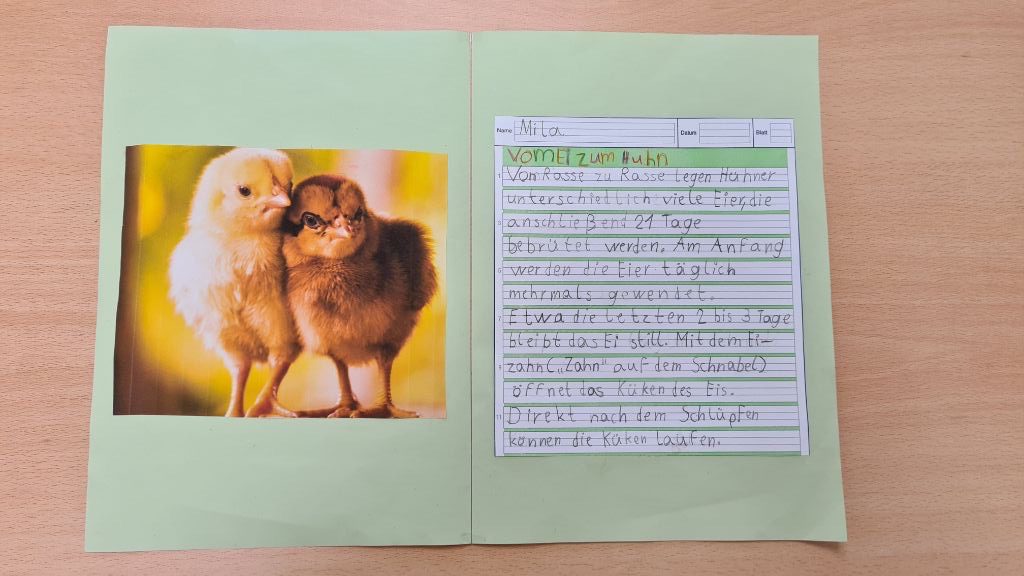 Name Mila Datum Blatt
Vom Ei zum Huhn
Von Rasse zu Rasse legen Hühner
unterschiedlich viele Eier, die
anschließend 21 Tage
bebrütet werden. Am Anfang
werden die Eier täglich
mehrmals gewendet.
Etwa die letzten 2 bis 3 Tage
bleibt das Ei still. Mit dem Ei-
zahn („Zahn" auf dem Schnabel)
öffnet das Küken des Eis.
Direkt nach dem Schlüpfen
können die Küken laufen.